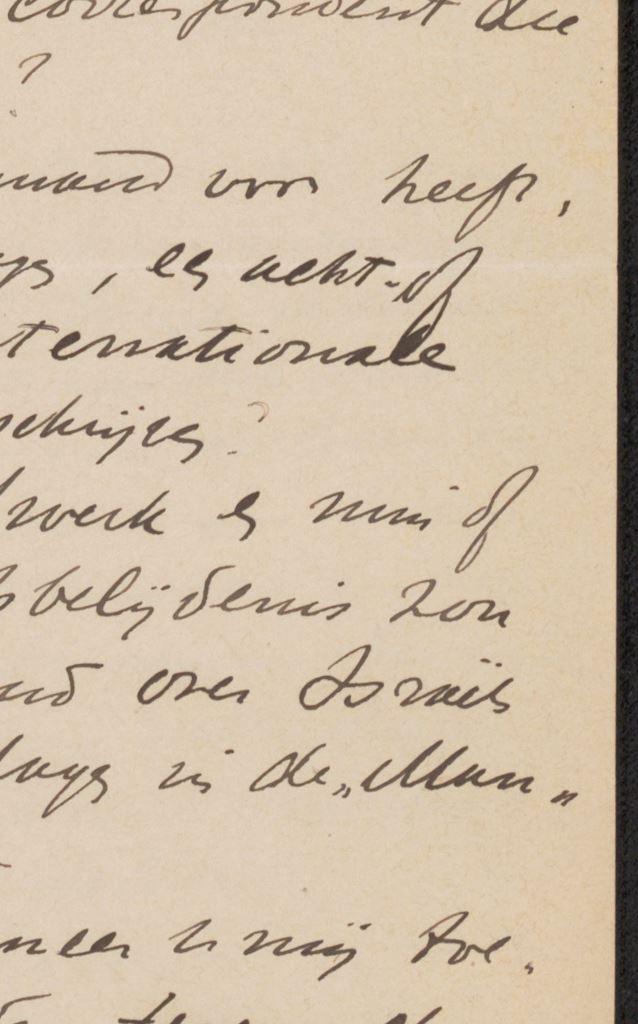 correspondent die
?
mand voor heeft,
, en acht- of
ternationale
schrijven?
werk en min of
sbelijdenis zou
and over Israëls
daags in de „Man„
neer U mij toe.